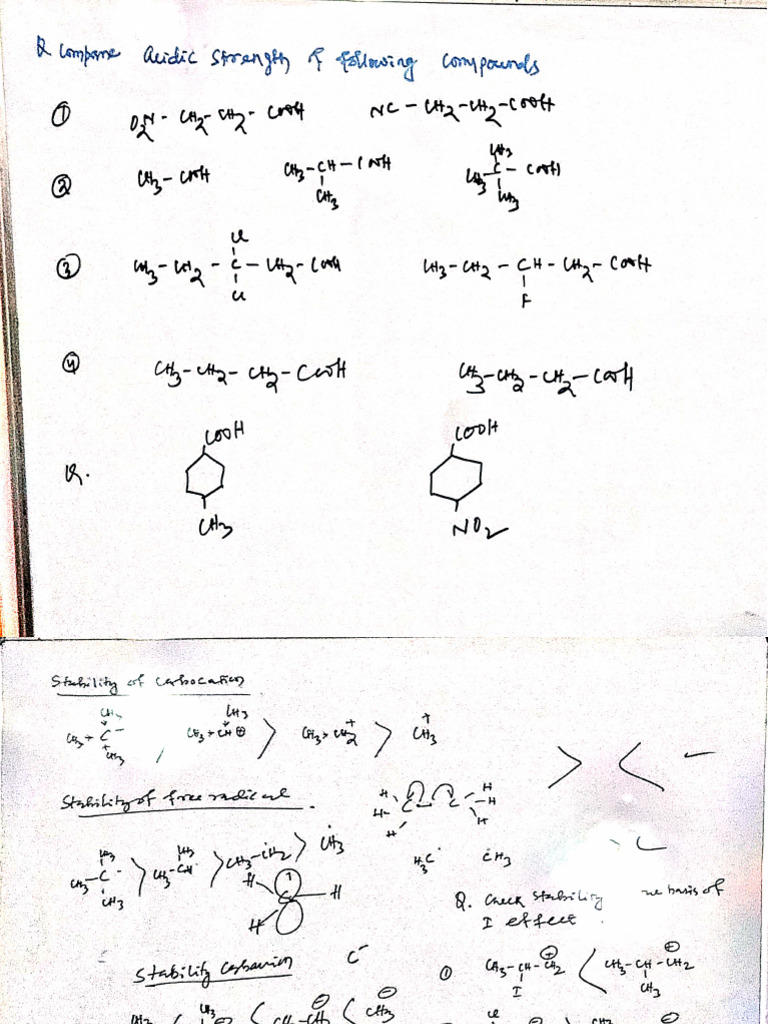 Q Compare Acidic Strength of following compounds
① O2N - CH2-CH2- COOH NC - CH2-CH2-COOH
② CH3 - COOH CH3-CH-COOH CH3-C-COOH
CH3 CH3 CH3 CH3
③ CH3-CH2-C-CH2-COOH CH3-CH2-CH-CH2-COOH
Cl Cl F
④ CH3-CH2-CH2-COOH CH3-CH2-CH2-COOH
Q. COOH COOH
CH3 NO2
Stability of carbocation
CH3 CH3
CH3 C CH3 CH ⊕ > CH3 CH2+ > CH3+
CH3
> < -
Stability of free radical.
H C C H
CH3 CH3
CH3-C > CH3-CH > CH3-CH2 > CH3
CH3
H C H
H
H3C CH3
Q. Check Stability basis of
I effect
Stability C-
① CH3-CH-CH2 ⊕ < CH3-CH-CH2
I CH3
CH3 < < CH-CH < CH3